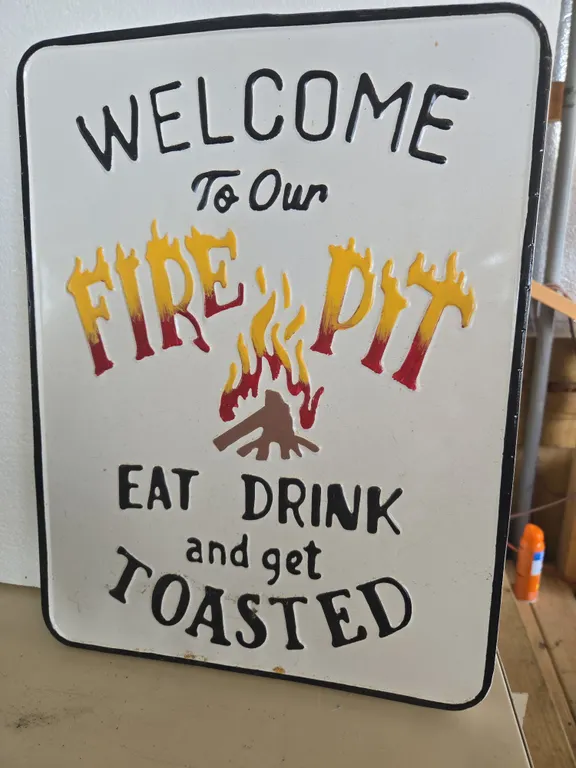 WELCOME
To Our
FIRE PIT
EAT DRINK
and get
TOASTED